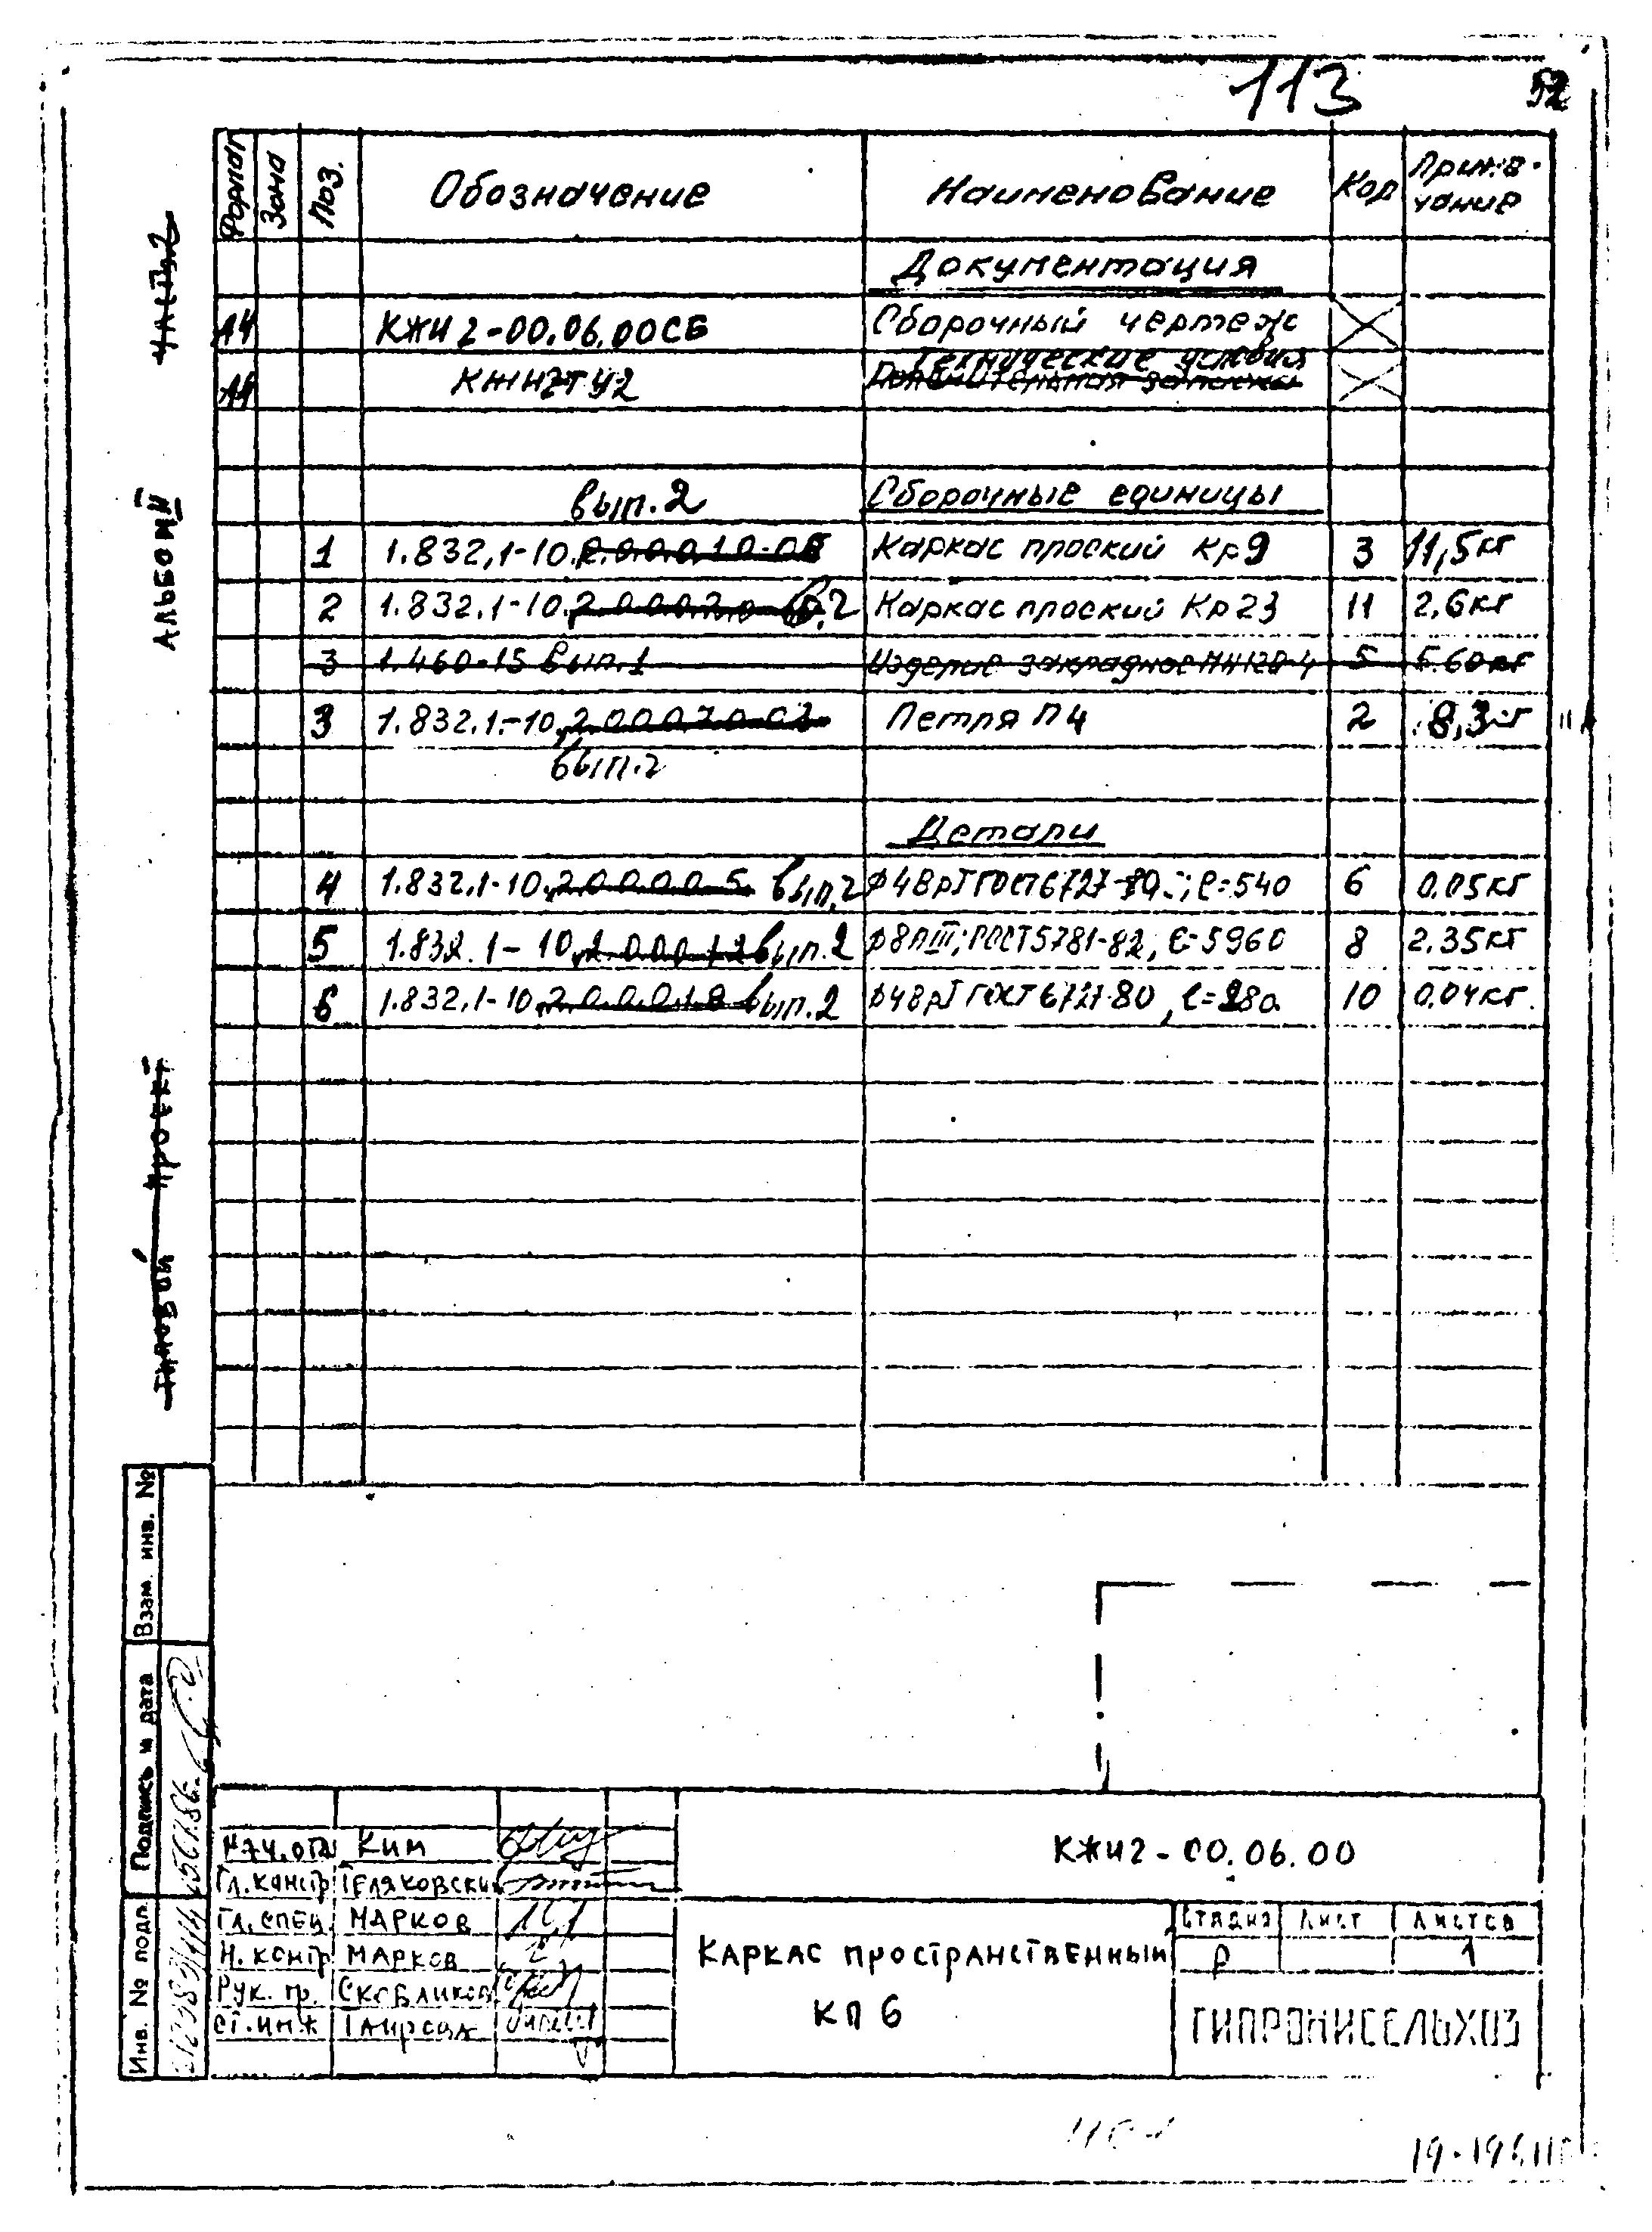 113
52
Формат Зона Поз. Обозначение Наименование Кол Приме-
чание
Документация
А4 КЖИ2-00.06.00СБ Сборочный чертеж
А4 КЖИ2ТУ2 Технические условия
Пояснительная записка
вып.2 Сборочные единицы
1 1.832.1-10.2.0.0.0.1.0-08 Каркас плоский Кр9 3 11,5кг
2 1.832.1-10. в.2 Каркас плоский Кр23 11 2.6кг
3 1.460-15 вып.1 Изделие закладное 5 5.60кг
3 1.832.1-10. Петля П4 2 8,3кг
вып.2
Детали
4 1.832.1-10.2.0.0.0.0.5. вып.2 ф4ВрI ГОСТ6727-80; ℓ=540 6 0.05кг
5 1.832.1-10.2.0.0.0.1.2 вып.2 ф8АIII; ГОСТ5781-82, ℓ=5960 8 2.35кг
6 1.832.1-10.2.0.0.0.1.8 вып.2 ф4ВрI ГОСТ6727-80, ℓ=280 10 0.04кг.
Часть2
Альбом II
Типовой проект
Взам. инв. №
Подпись и дата
Инв. № подл.
Нач.отд Ким
Гл.констр Теляковский
Гл.спец. Марков
Н.контр Марков
Рук. гр. Скобликов
Ст.инж Таирова
КЖИ2-00.06.00
Каркас пространственный
КП 6
Стадия Лист Листов
Р 1
ГИПРОНИСЕЛЬХОЗ